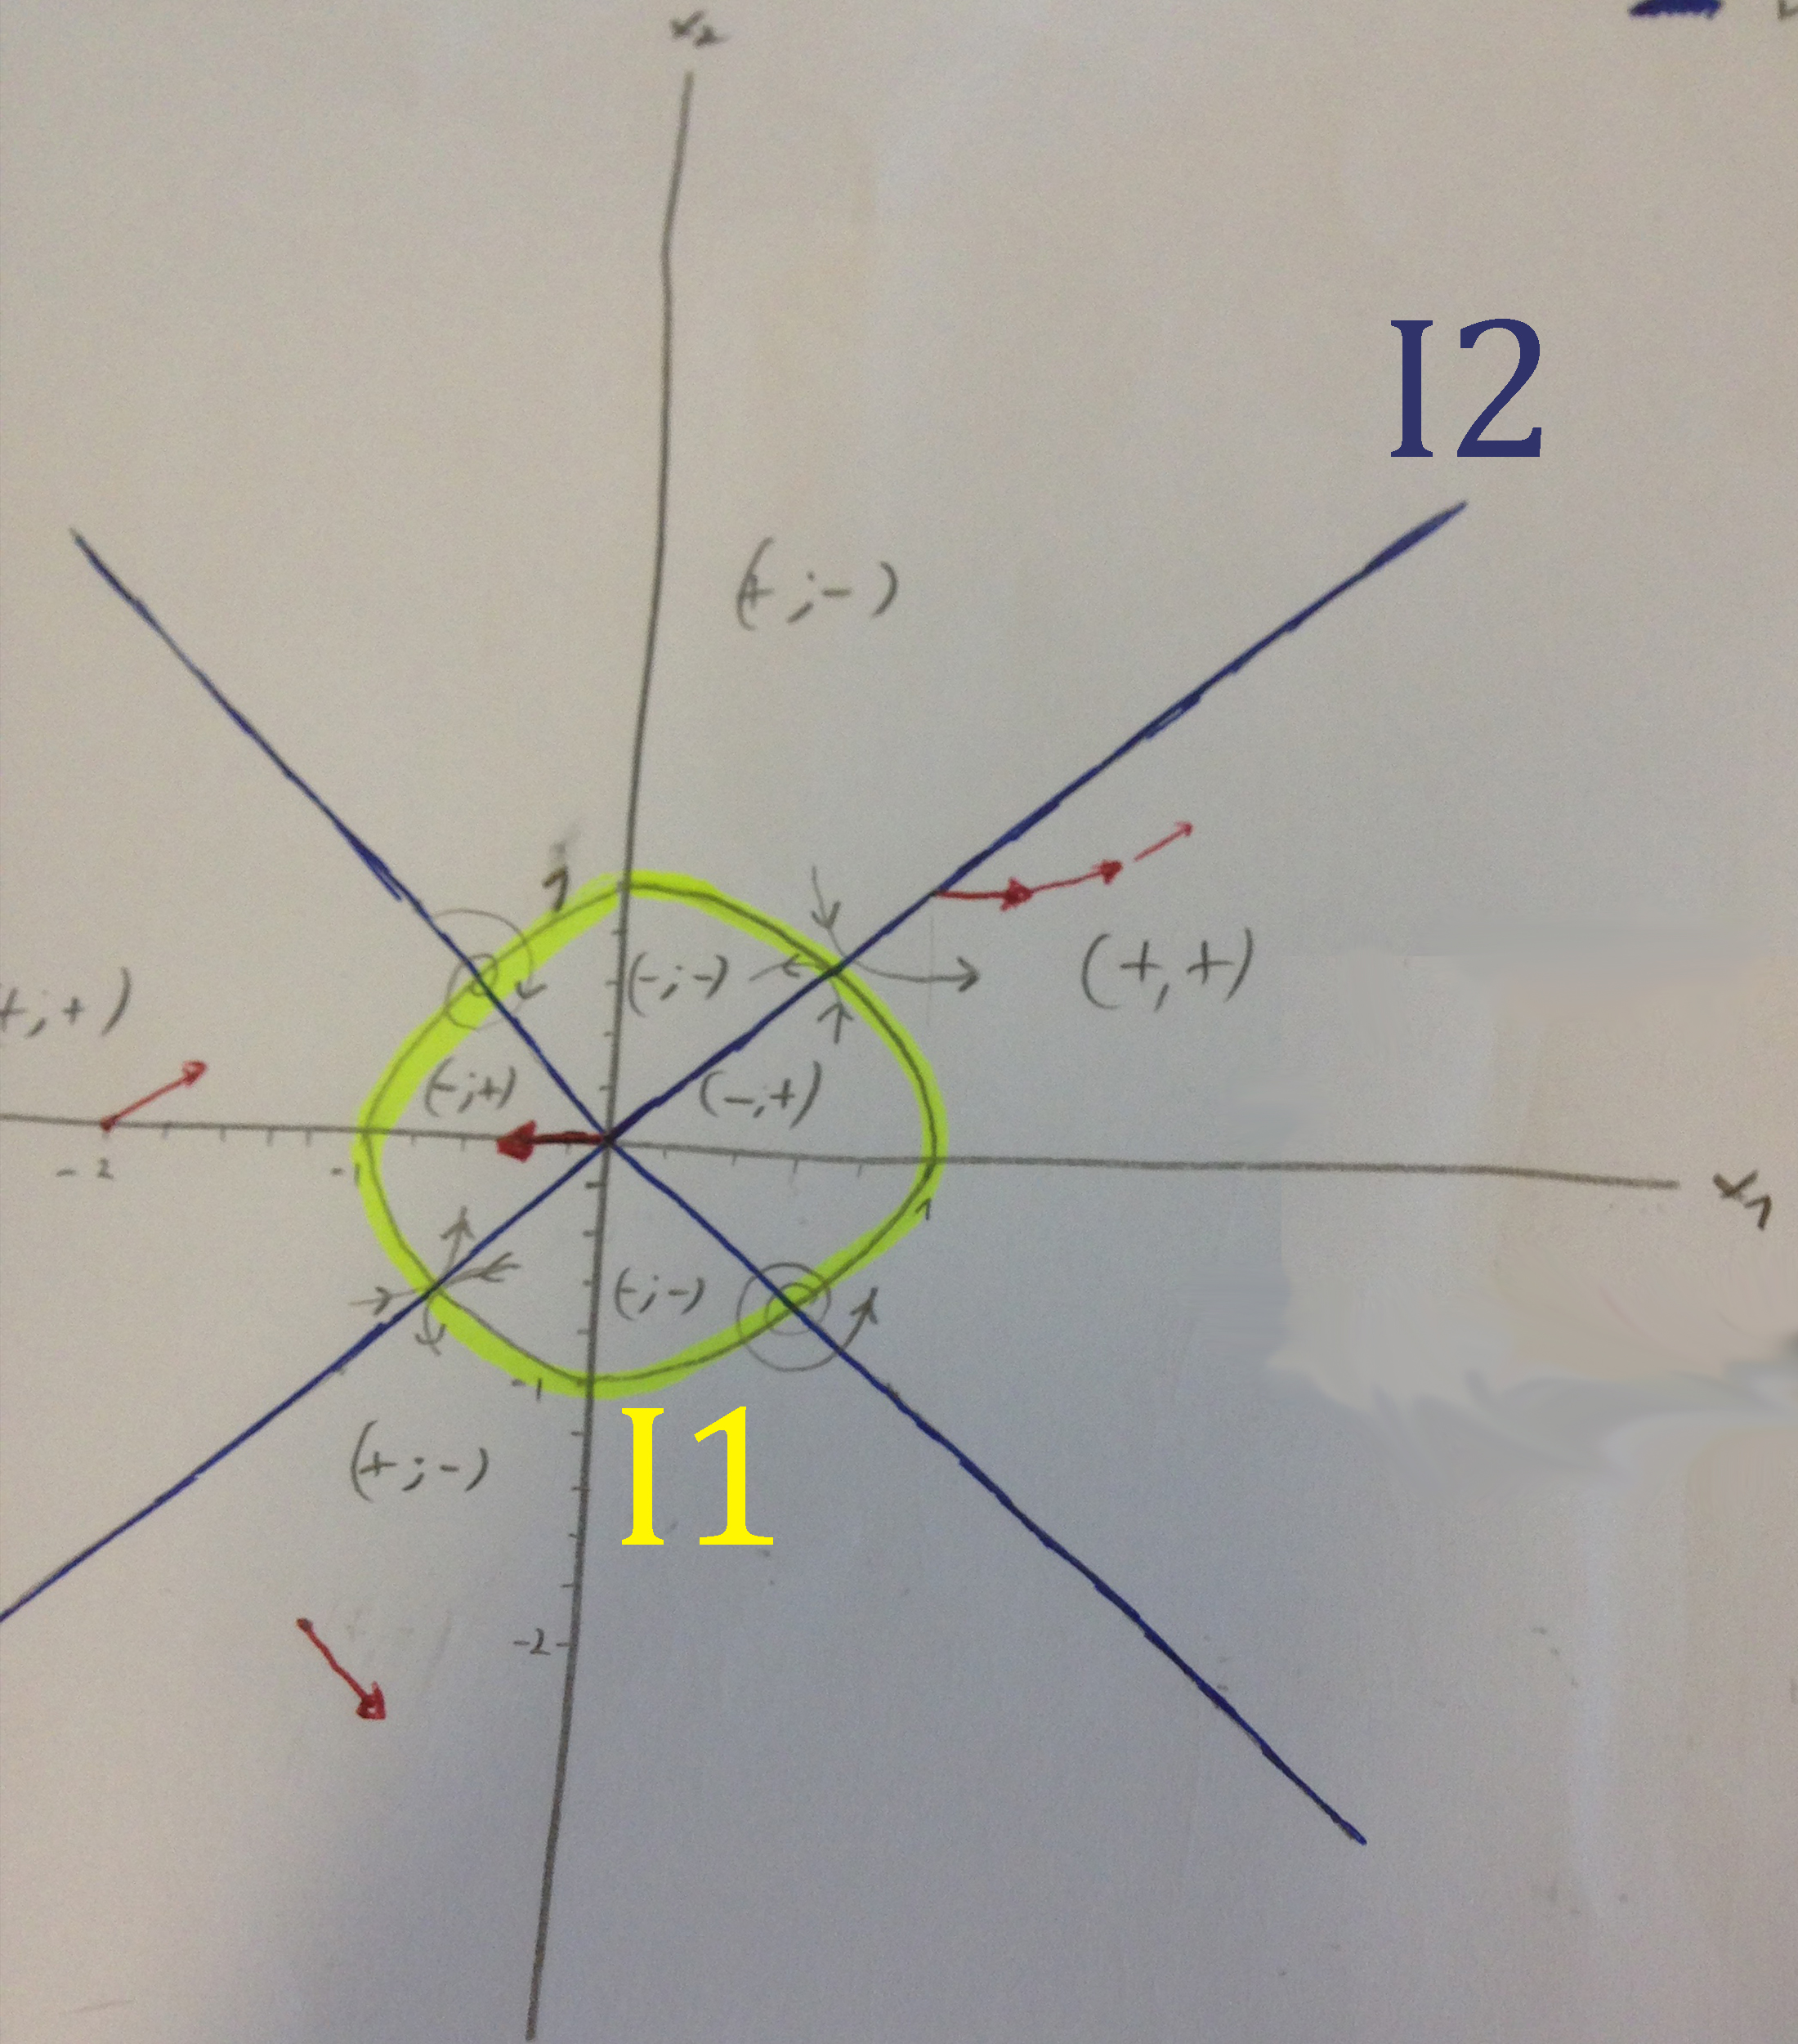 x₂
I2
(+;-)
1
(-;-)
(+,+)
+;+)
(-;+)
(-,+)
-2
-1
1
x₁
(-;-)
-1
I1
(+;-)
-2